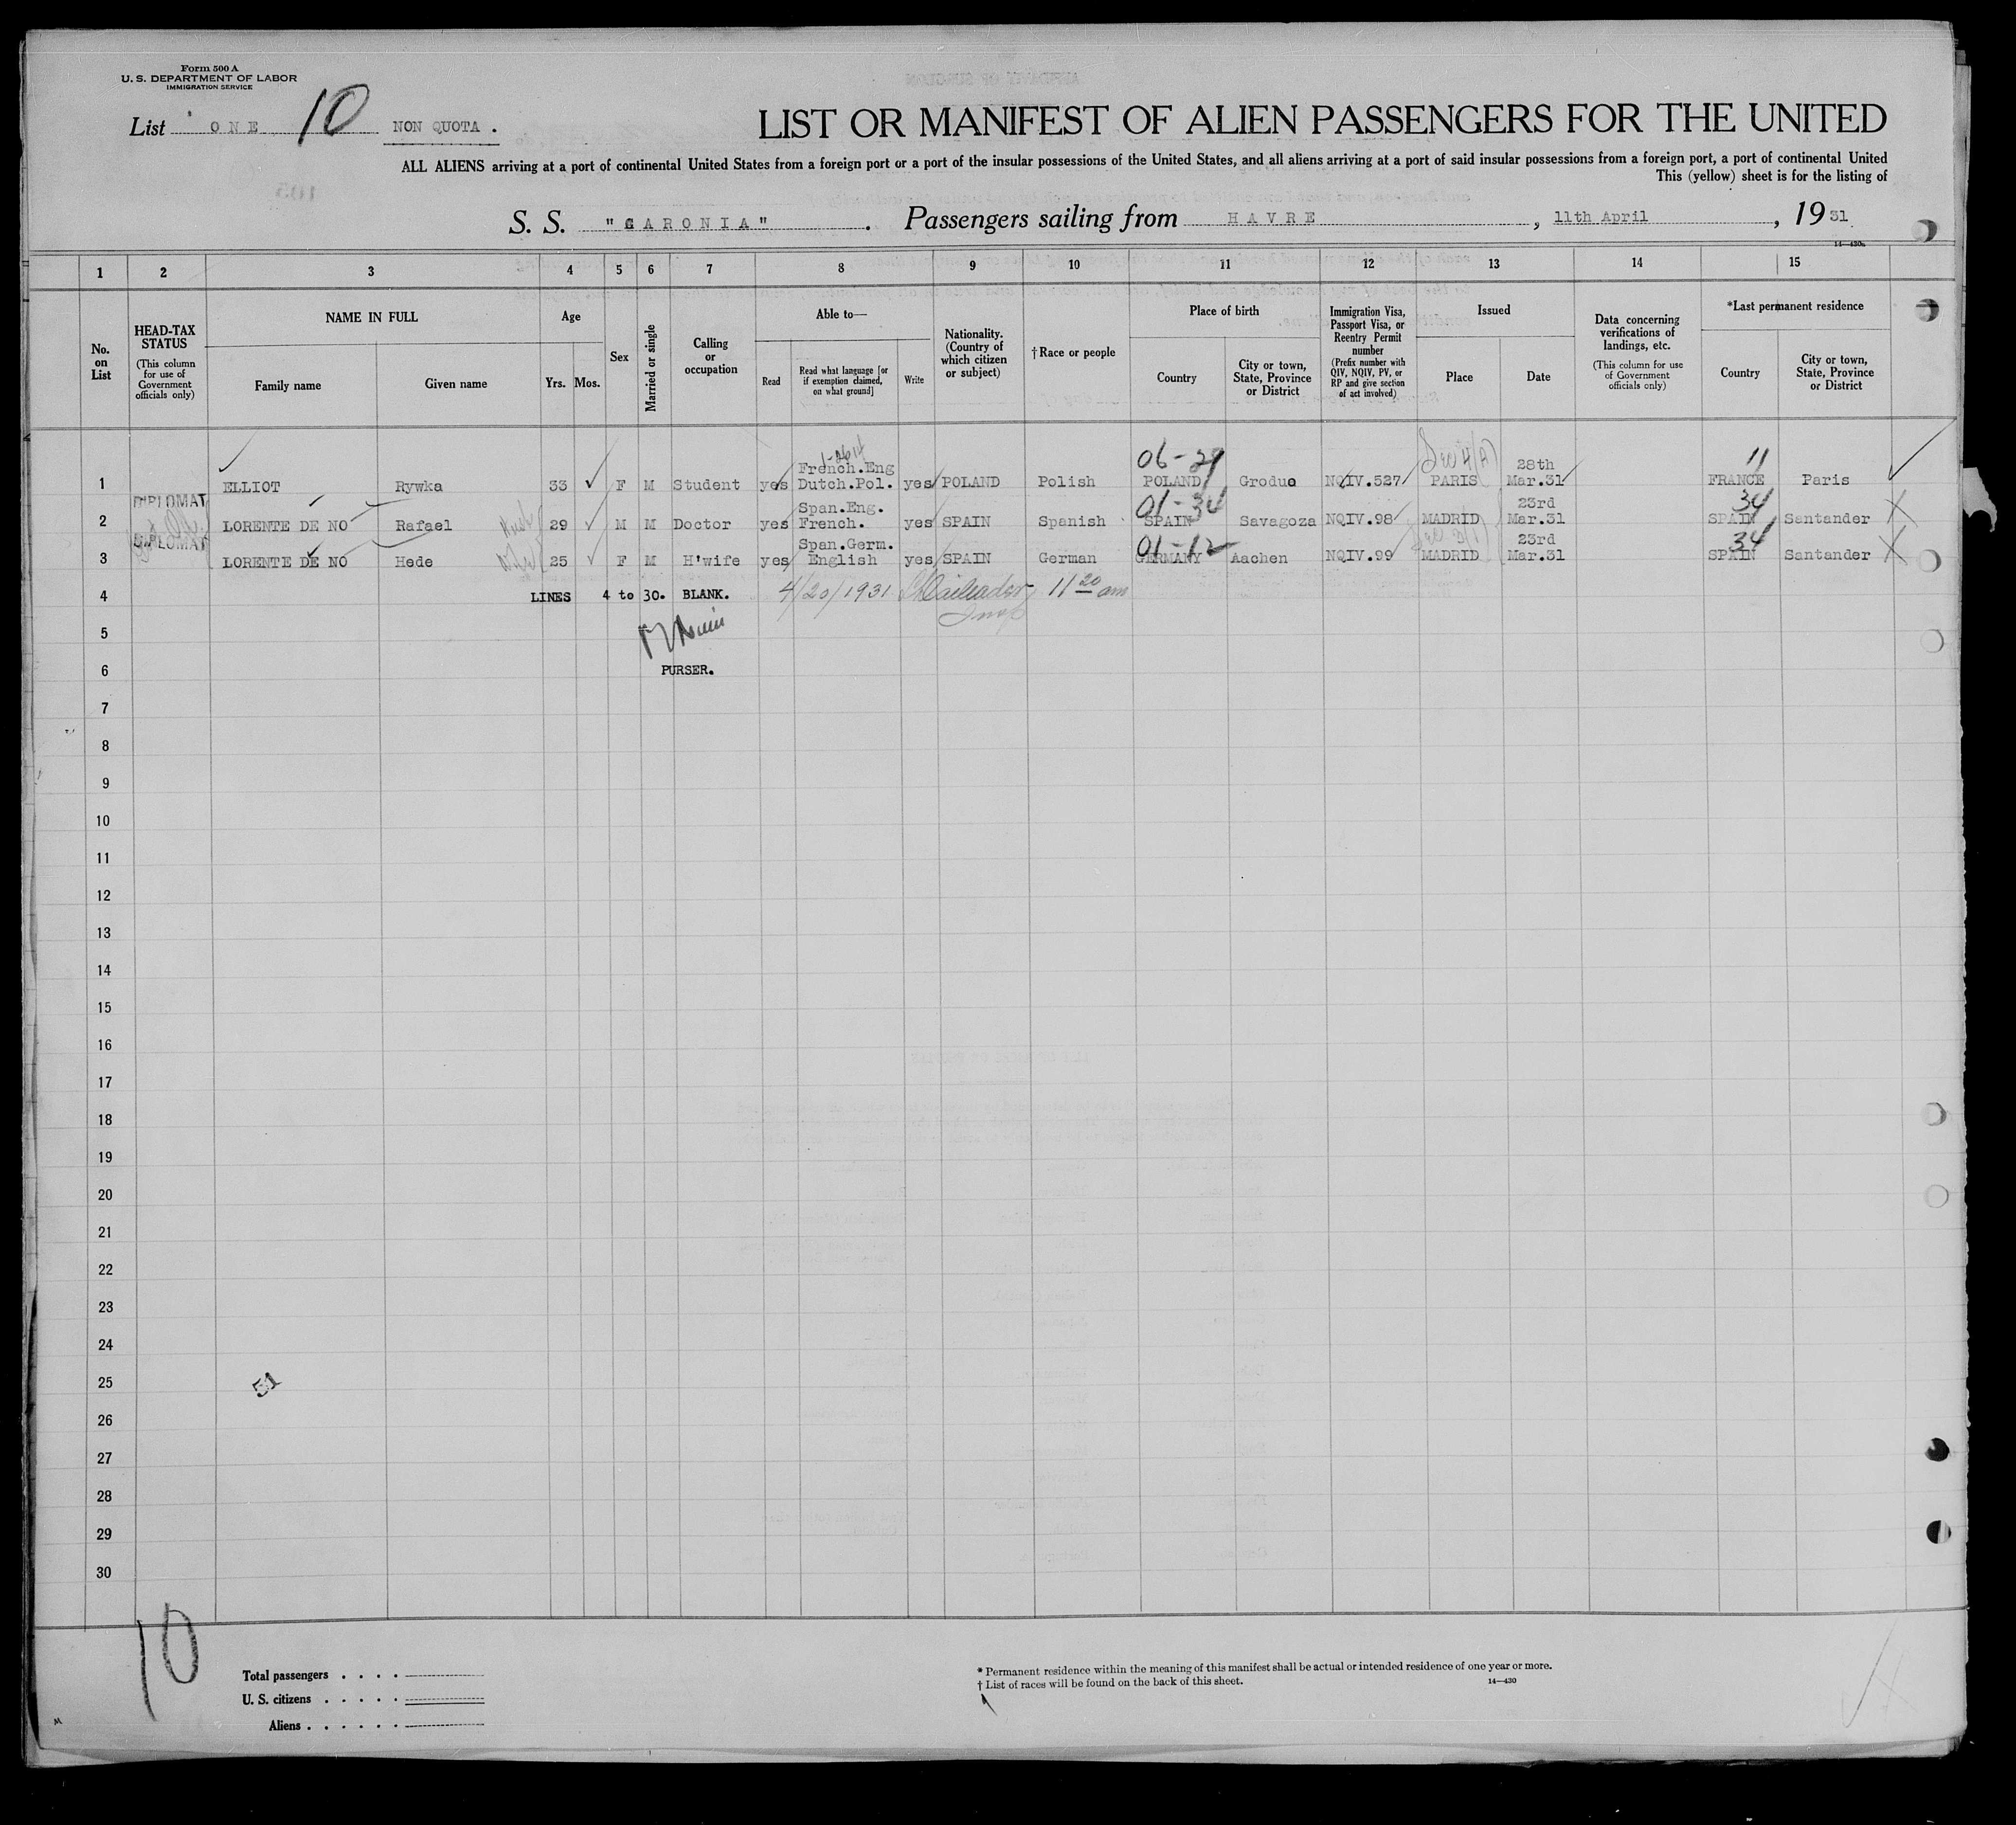 Form 500 A
U. S. DEPARTMENT OF LABOR
IMMIGRATION SERVICE
List ONE 10 NON QUOTA .
LIST OR MANIFEST OF ALIEN PASSENGERS FOR THE UNITED
ALL ALIENS arriving at a port of continental United States from a foreign port or a port of the insular possessions of the United States, and all aliens arriving at a port of said insular possessions from a foreign port, a port of continental United
This (yellow) sheet is for the listing of
S. S. "CARONIA" . Passengers sailing from HAVRE , 11th April , 19 31
14—430a
1 2 3 4 5 6 7 8 9 10 11 12 13 14 15
No. on List
HEAD-TAX STATUS (This column for use of Government officials only)
NAME IN FULL
Family name
Given name
Age
Yrs. Mos.
Sex
Married or single
Calling or occupation
Able to—
Read
Read what language [or if exemption claimed, on what ground]
Write
Nationality. (Country of which citizen or subject)
† Race or people
Place of birth
Country
City or town, State, Province or District
Immigration Visa, Passport Visa, or Reentry Permit number (Prefix number with QIV, NQIV, PV, or RP and give section of act involved)
Issued
Place
Date
Data concerning verifications of landings, etc. (This column for use of Government officials only)
*Last permanent residence
Country
City or town, State, Province or District
06-29 11
1 ELLIOT Rywka 33 F M Student yes French.Eng Dutch.Pol. yes POLAND Polish POLAND Groduo NQIV.527 PARIS 28th Mar.31 FRANCE Paris
DIPLOMAT 01-34 34
2 LORENTE DE NO Rafael 29 M M Doctor yes Span.Eng. French. yes SPAIN Spanish SPAIN Savagoza NQIV.98 MADRID 23rd Mar.31 SPAIN Santander
DIPLOMAT 01-12 34
3 LORENTE DE NO Hede 25 F M H'wife yes Span.Germ. English yes SPAIN German GERMANY Aachen NQIV.99 MADRID 23rd Mar.31 SPAIN Santander
4 LINES 4 to 30. BLANK. 4/20/1931 11 20 am
5 Insp
6 PURSER.
7
8
9
10
11
12
13
14
15
16
17
18
19
20
21
22
23
24
25 51
26
27
28
29
30
10
Total passengers . . . .
U. S. citizens . . . . .
Aliens . . . . . .
* Permanent residence within the meaning of this manifest shall be actual or intended residence of one year or more.
† List of races will be found on the back of this sheet.
14—430